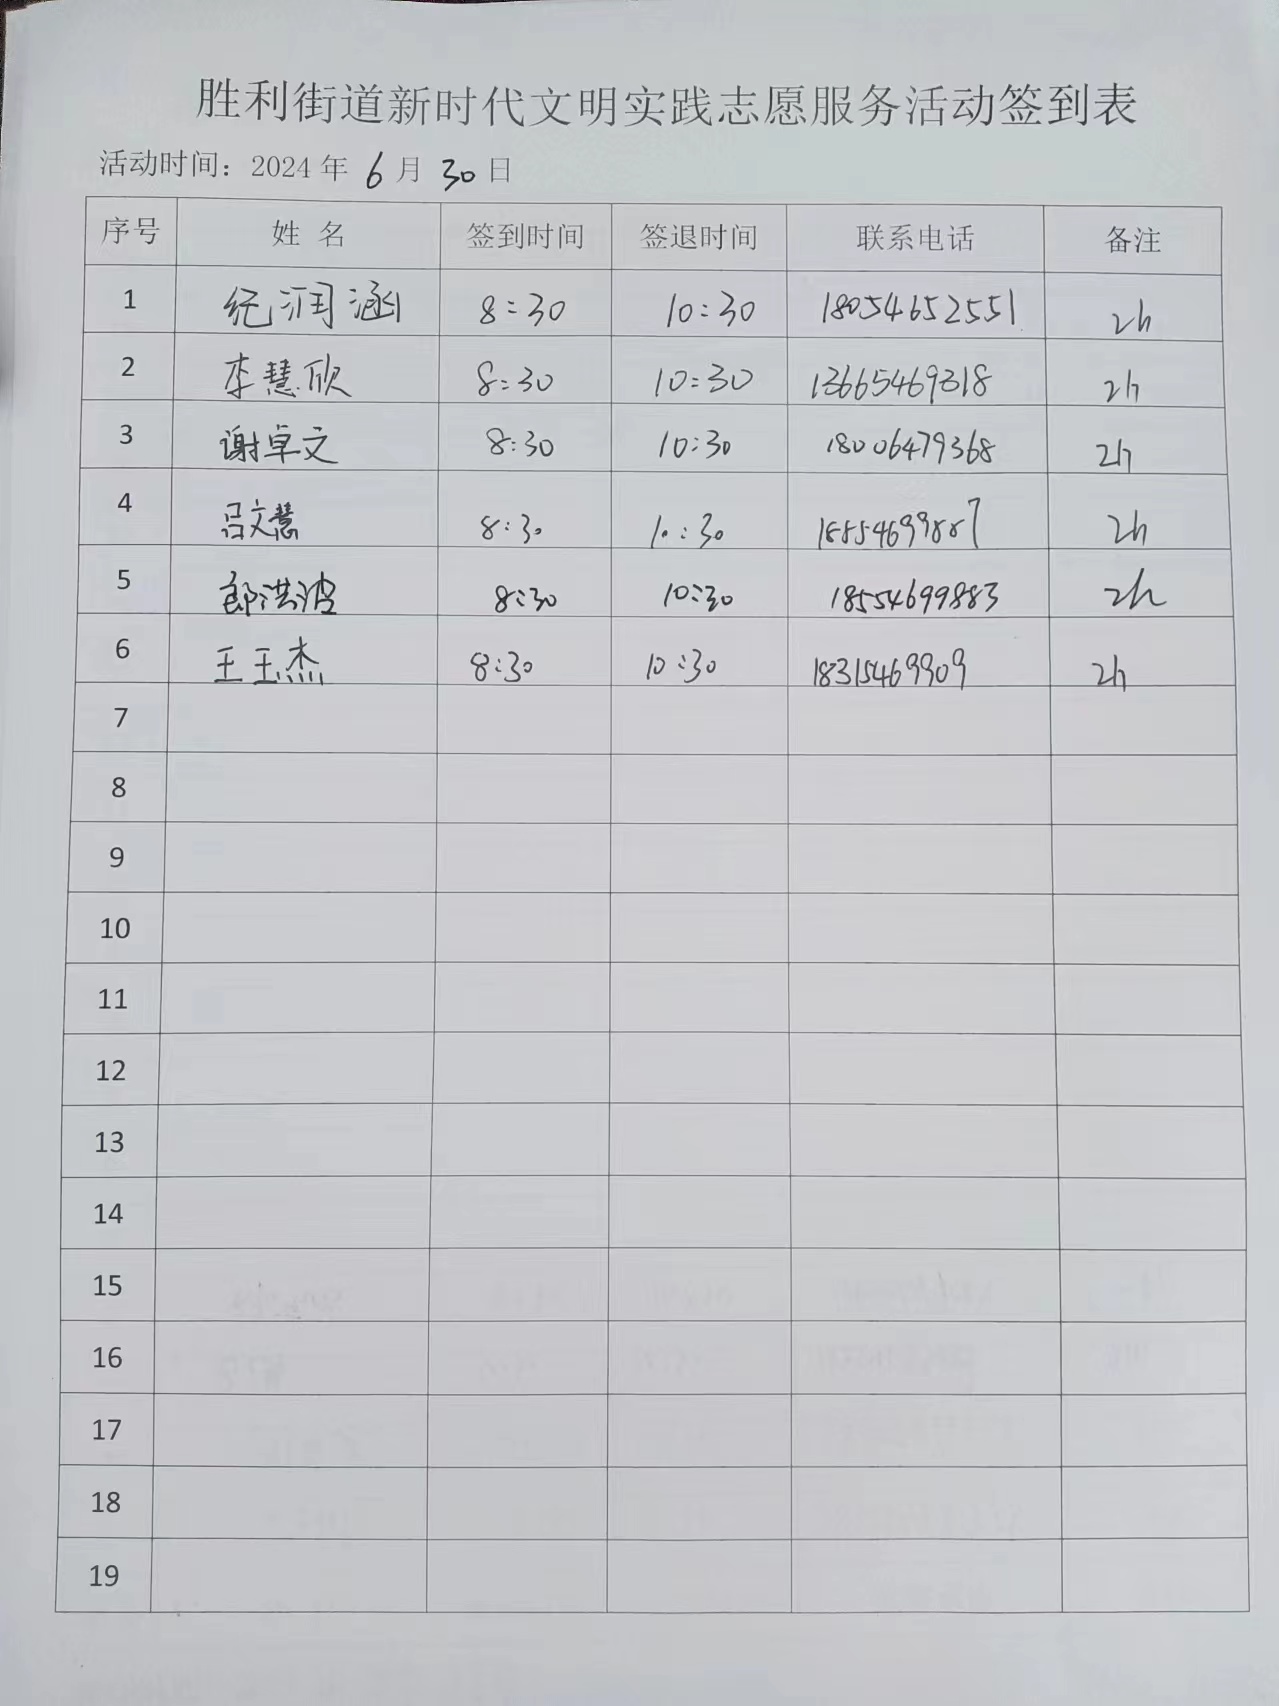 胜利街道新时代文明实践志愿服务活动签到表
活动时间：2024 年 6 月 30 日
序号 姓 名 签到时间 签退时间 联系电话 备注
1 纪润涵 8:30 10:30 18054652551 2h
2 李慧欣 8:30 10:30 13665469318 2h
3 谢卓文 8:30 10:30 18006479368 2h
4 吕文慧 8:30 10:30 18554699887 2h
5 郎洪波 8:30 10:30 18554699883 2h
6 王玉杰 8:30 10:30 18315469909 2h
7
8
9
10
11
12
13
14
15
16
17
18
19